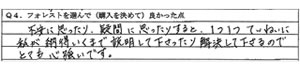 Q4. フォレストを選んで(購入を決めて)良かった点
不安に思ったり、疑問に思ったりすると、1つ1つていねいに
私が納得いくまで説明して下さったり解決して下さるので
とても心強いです。